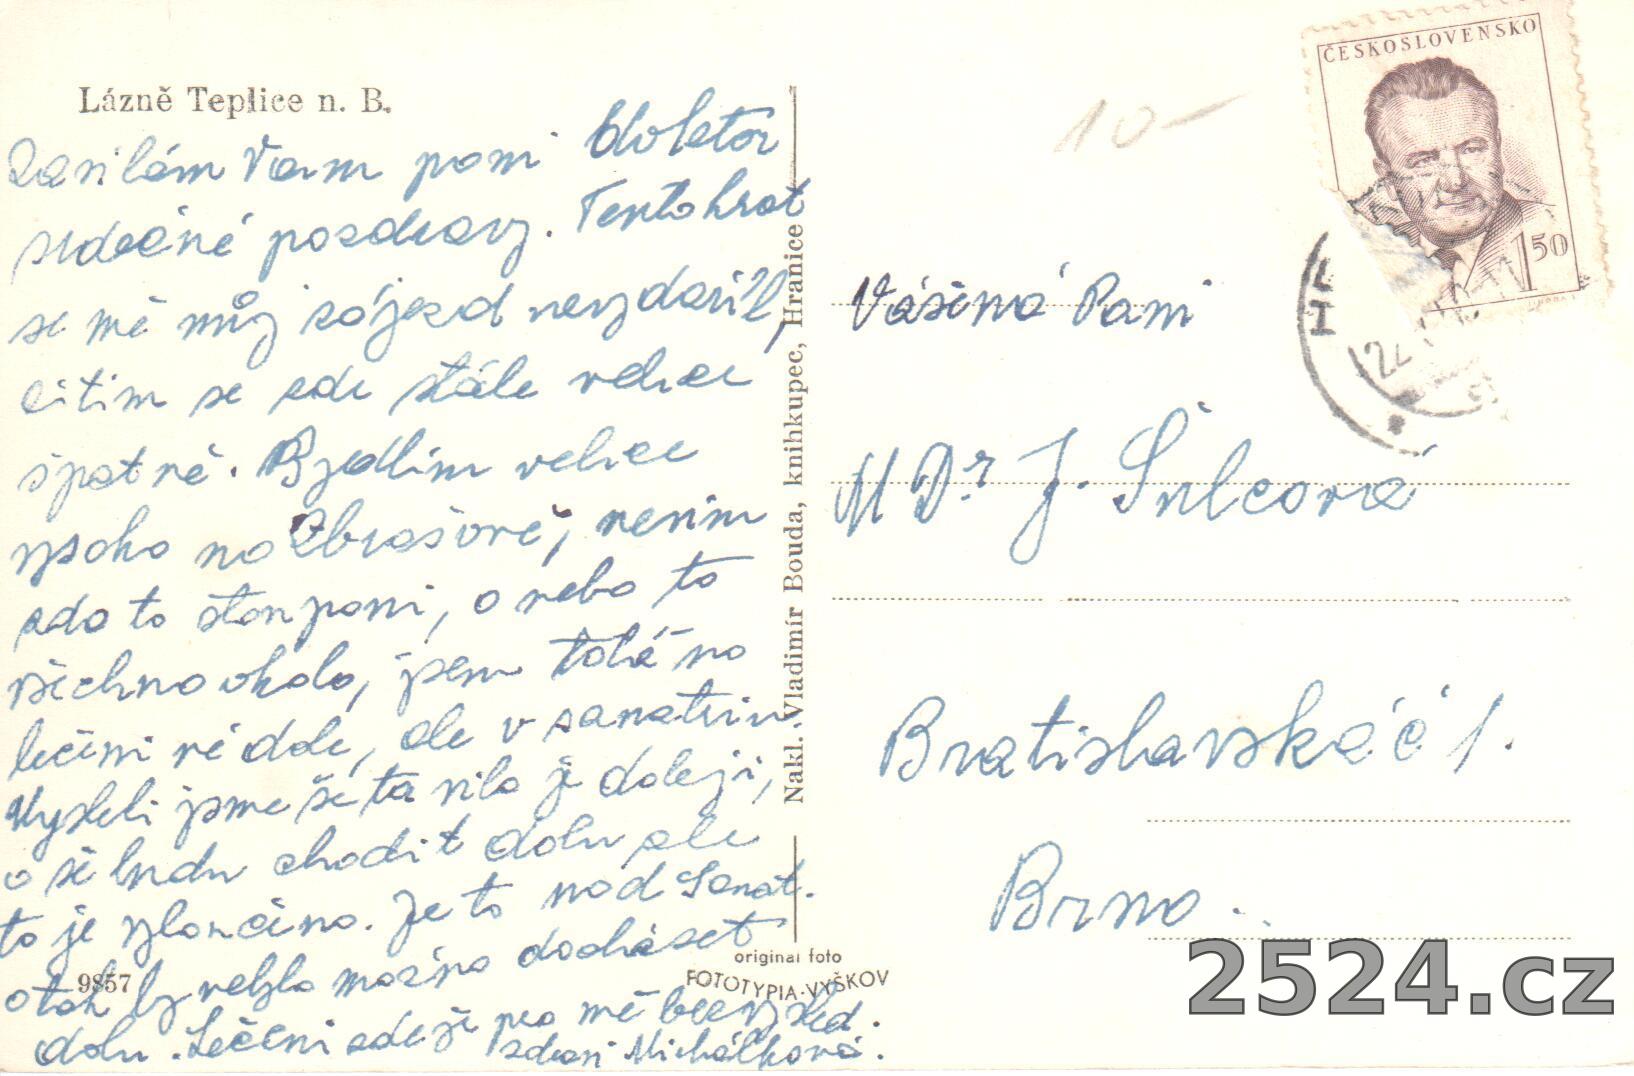 Lázně Teplice n. B.
Zasílám Vam paní doktor
srdečné pozdravy. Tentokrat
se mě můj zájezd nevydařil,
citim se zde stále velice
špatně. Bydlím velice
vysoko na Zbrašově, nevím
zda to stoupani, a nebo to
všechno okolo, jsem také na
lečeni ve dole, ale v sanatoriu.
Mysleli jsme že ta vila je doleji,
a že budu chodit dolu ale
to je vyloučino. Je to nad Sanat.
otak by nebylo možno docházet
dolu. Léčeni zde je pro mě bezvysled.
zdraví Michálková.
9857
Nakl. Vladimír Bouda, knihkupec, Hranice
original foto
FOTOTYPIA-VYŠKOV
10-
ČESKOSLOVENSKO
1 50
Vážená Pani
MDr J. Šulcová
Bratislavská č 1.
Brno.
2524.cz